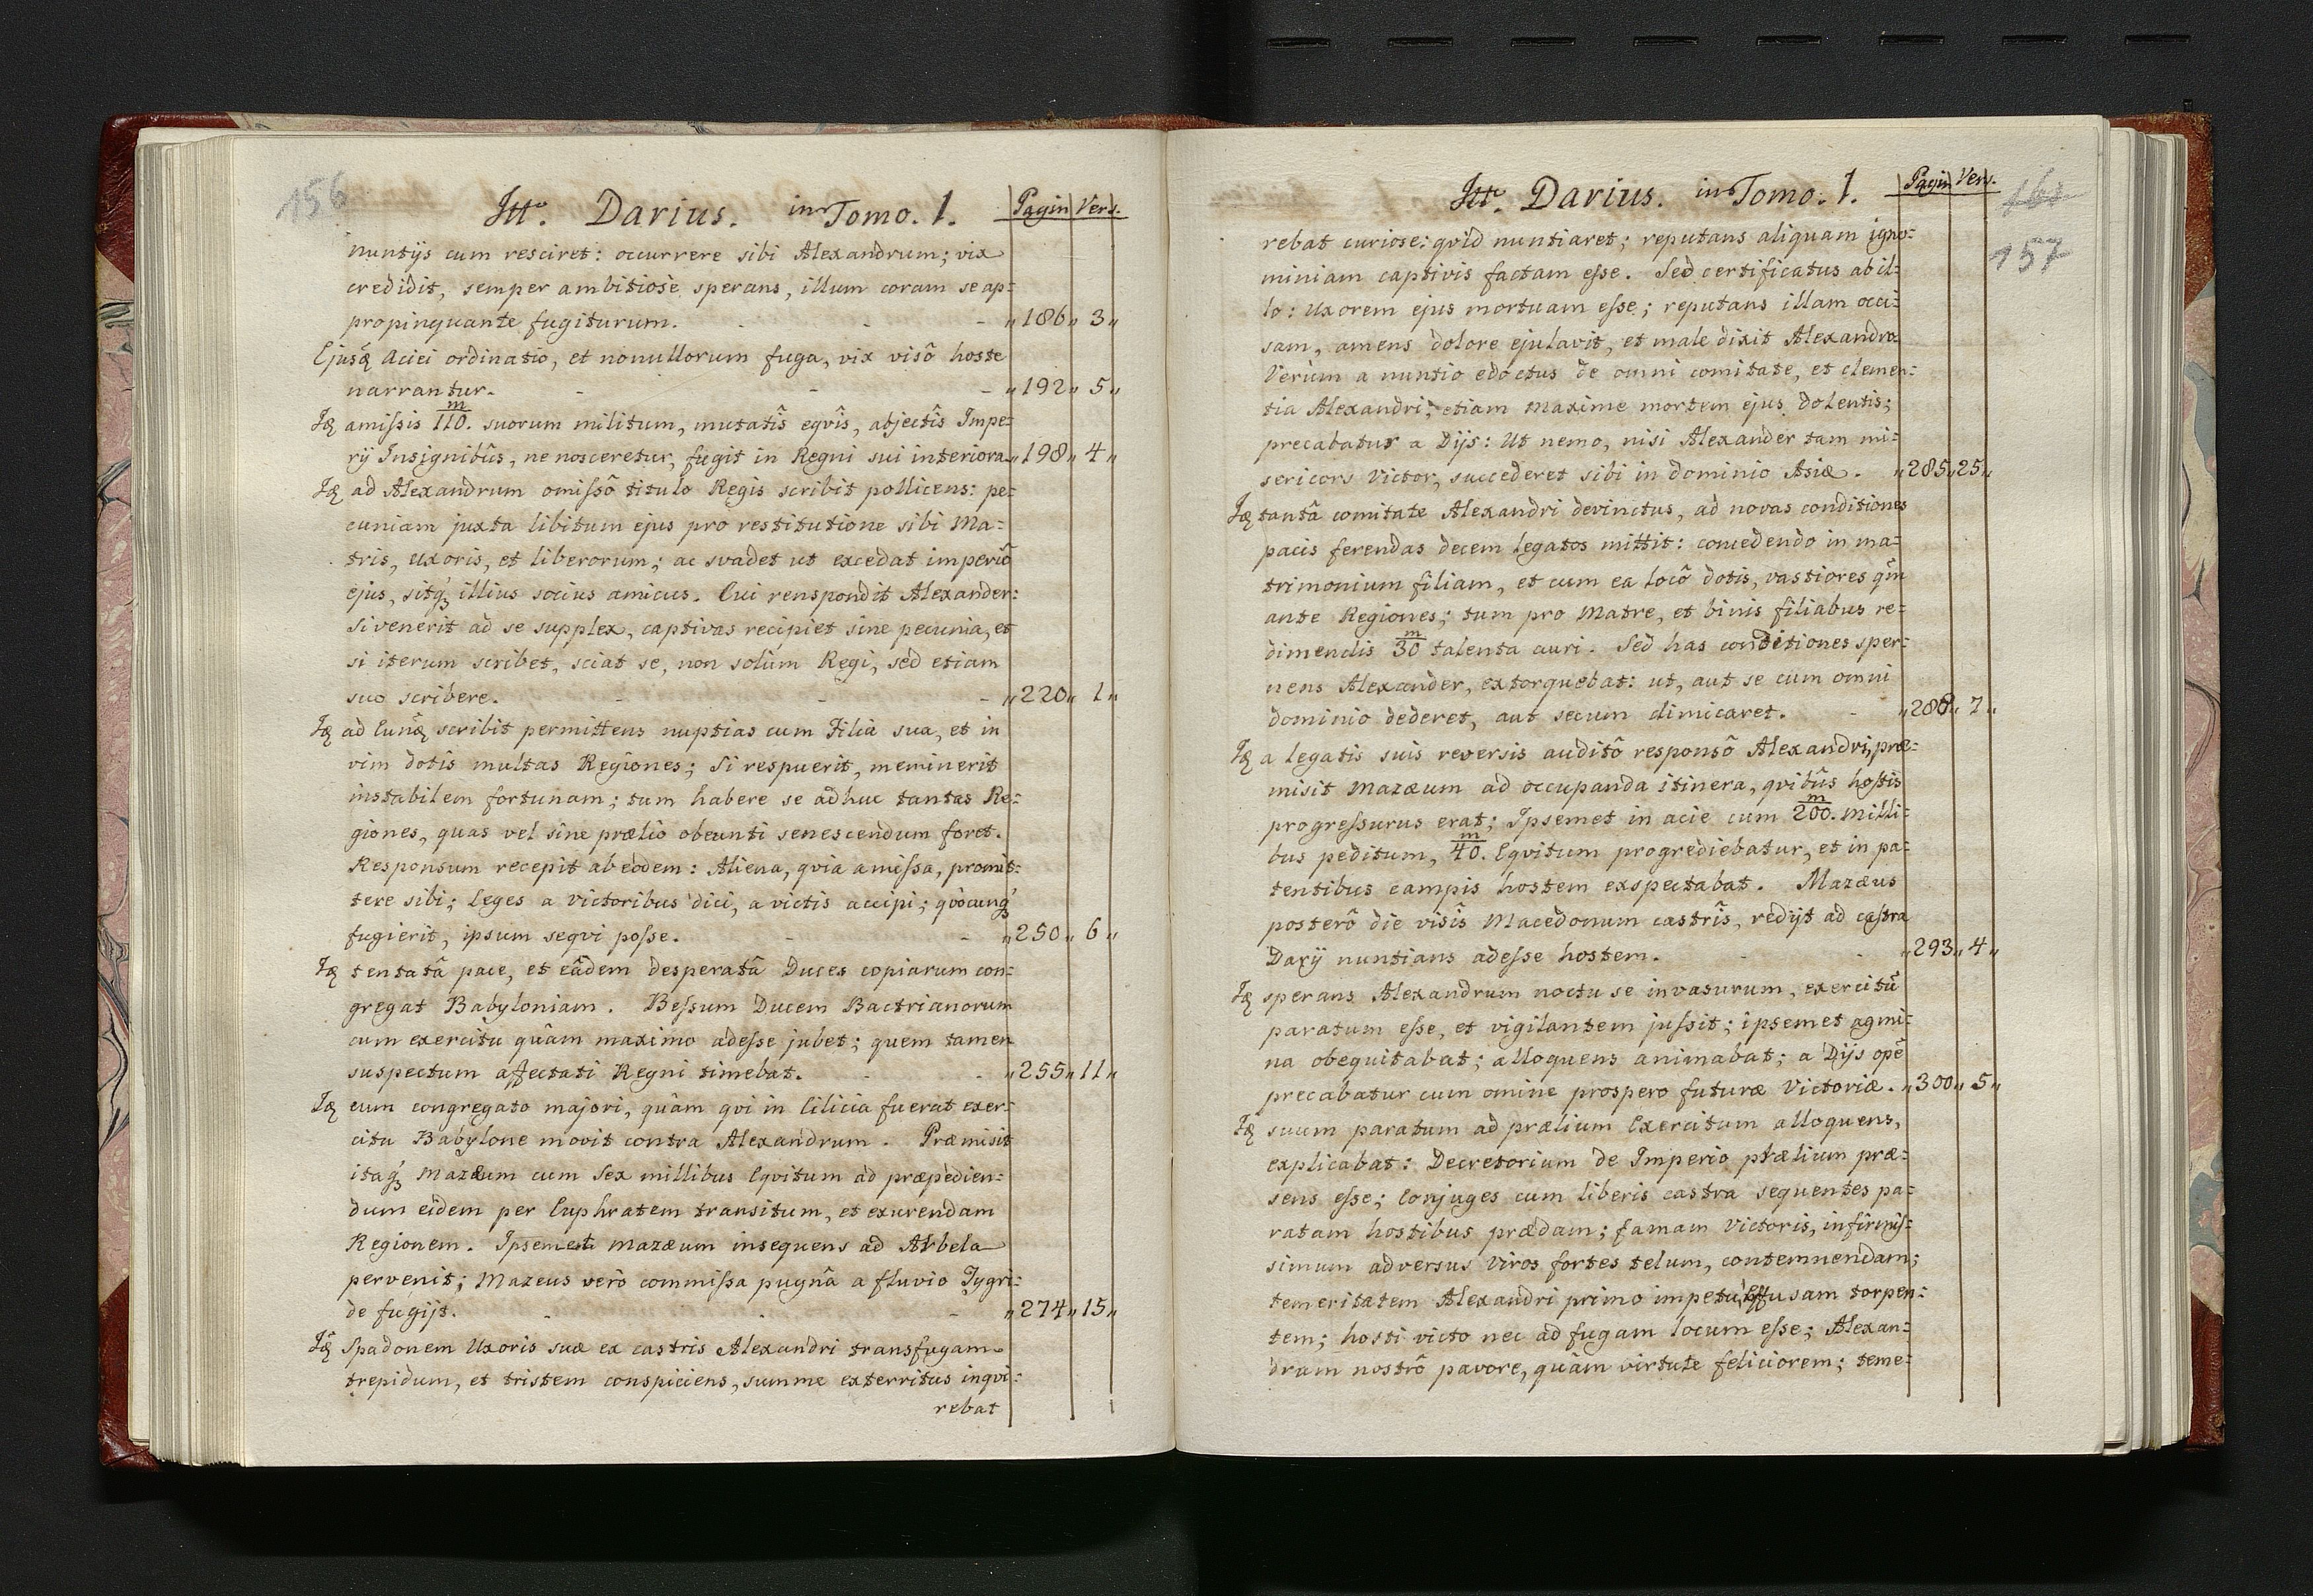 156
Itt. Darius. in Tomo. 1. Pagin Vers.
nuntijs cum resciret: occurrere sibi Alexandrum; vix
credidit, semper ambitiosè sperans, illum coram se ap=
propinquante fugiturum. - - - „186„ 3„
Ejusq̃ Aciei ordinatio, et nonullorum fuga, vix visô hoste
narrantur. - - - „192„ 5„
Iq̃ amissis 110.m suorum militum, mutatîs eqvîs, abjectîs Impe=
rij Insignibûs, ne nosceretur, fugit in Regni sui interiora „198„ 4„
Iq̃ ad Alexandrum omissô titulo Regis scribit pollicens: pe=
cuniam juxta libitum ejus pro restitutione sibi Ma=
tris, uxoris, et liberorum; ac svadet ut excedat imperiô
ejus, sitq́ʒ illius socius amicus. Cui renspondit Alexander:
si venerit ad se supplex, captivas recipiet sine pecunia, et
si iterum scribet, sciat se, non solùm Regi, sed etiam
suo scribere. - - - „220„ 1„
Iq̃ ad Eunq̃ scribit permittens nuptias cum Filia sua, et in
vim dotis multas Regiones; Si respuerit, meminerit
instabilem fortunam; tum habere se adhuc tantas Re=
giones, quas vel sine prælio obeunti senescendum foret.
Responsum recepit ab eodem: Aliena, qvia amissa, promit=
tere sibi; leges a victoribus dici, a victis accipi; qvòcunq́ʒ
fugierit, ipsum seqvi posse. - - „250„ 6„
Iq̃ tentatâ pace, et eâdem desperatâ Duces copiarum con=
gregat Babyloniam. Bessum Ducem Bactrianorum
cum exercitu quâm maximo adesse jubet; quem tamen
suspectum affectati Regni timebat. - - „255„ 11„
Iq̃ cum congregato majori, quàm qvi in Cilicia fuerat exer=
citu Babylone movit contra Alexandrum. Præmisit
itaq́ʒ Mazæum cum Sex millibus Eqvitum ad præpedien=
dum eidem per Euphratem transitum, et exurendam
Regionem. Ipsemet Mazæum insequens ad Arbela
pervenit; Mazeus verò commissa pugnâ a fluvio Tygri=
de fugijt. - - - „274„ 15„
Iq̃ Spadonem Uxoris suæ ex castris Alexandri transfugam
trepidum, et tristem conspiciens, summe exterritus inqvi=
rebat
Itt. Darius. in Tomo. 1. Pagin Vers.
161
157
rebat curiose: qvid nuntiaret; reputans aliquam igno=
miniam captivis factam esse. Sed certificatus ab il=
lo: Uxorem ejus mortuam esse; reputans illam occi=
sam, amens dolore ejulavit, et male dixit Alexandro.
Verùm a nuntio edoctus de omni comitate, et clemen=
tia Alexandri, etiam maxime mortem ejus dolentis;
precabatur a Dijs: Ut nemo, nisi Alexander tam mi=
sericors Victor, succederet sibi in dominio Asiæ. „285„ 25„
Iq̃ tantâ comitate Alexandri devinctus, ad novas conditiones
pacis ferendas decem legatos mittit: concedendo in ma=
trimonium filiam, et cum ea locô dotis, vastiores qm̃
ante Regiones; tum pro Matre, et binis filiabus re=
dimendis 30m talenta auri. Sed has conditiones sper=
nens Alexander, extorquebat: ut, aut se cum omni
dominio dederet, aut secum dimicaret. - „288„ 7„
Iq̃ a legatis suis reversis auditô responsô Alexandri, præ=
misit Mazæum ad occupanda itinera, qvibûs hostis
progressurus erat; Ipsemet in acie cum 200.m Milli=
bus peditum, 40.m Eqvitum progrediebatur, et in pa=
tentibus campis hostem exspectabat. Mazæus
posterô die visîs Macedonum castrîs, redijt ad castra
Darij nuntians adesse hostem. - - „293„ 4„
Iq̃ sperans Alexandrum noctu se invasurum, exercitũ
paratum esse, et vigilantem jussit; ipsemet agmi=
na obequitabat; alloquens animabat; a Dijs opẽ
precabatur cum omine prospero futuræ Victoriæ. „300„ 5„
Iq̃ suum paratum ad prælium Exercitum alloquens,
explicabat: Decretorium de Imperio prælium præ=
sens esse; Conjuges cum liberis castra sequentes pa=
ratam hostibus prædam; famam Victoris, infirmis=
simum adversus Viros fortes telum, contemnendam;
temeritatem Alexandri primo impetu effusam torpen=
tem; hosti victo nec ad fugam locum esse; Alexan=
drum nostrô pavore, quàm virtute feliciorem; teme=